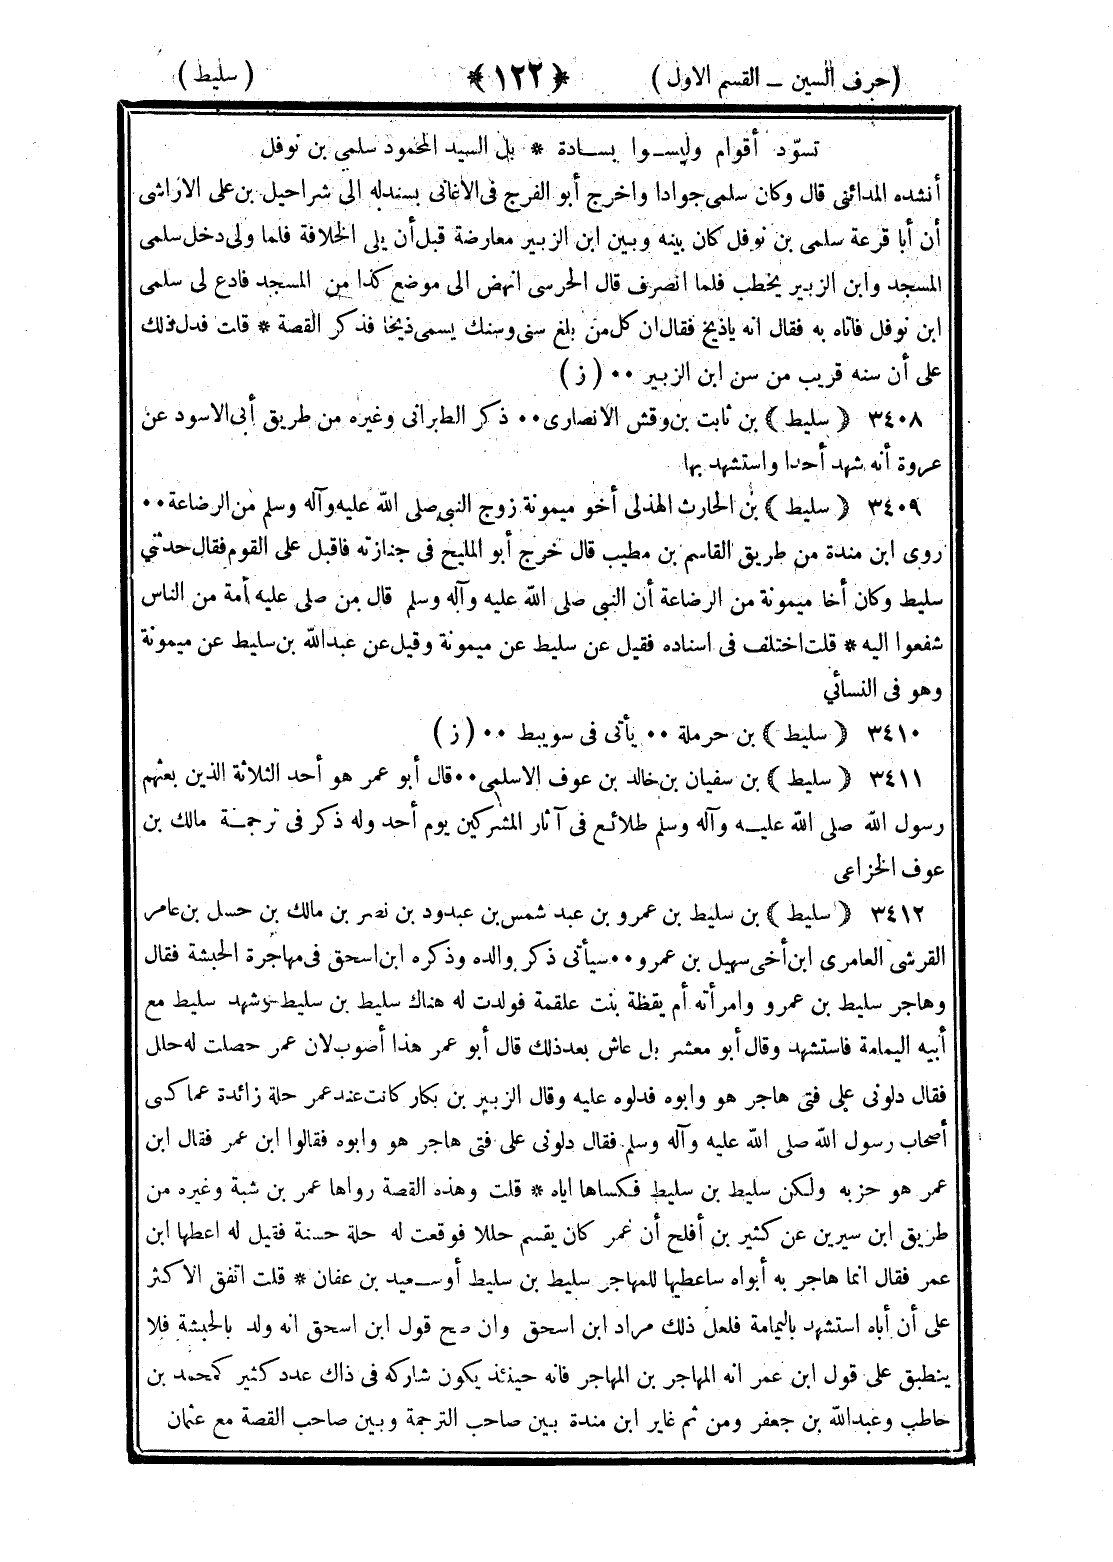 (حرف السين ــ القسم الاول) ﴿١٢٢﴾ (سليط)
تسوّد أقوام وليسـوا بسـادة * بل السيد المحمود سلمى بن نوفل
أنشده المدائنى قال وكان سلمى جوادا واخرج أبو الفرج فى الاغانى بسندله الى شراحيل بن على الاراشى
أن أبا قرعة سلمى بن نوفل كان بينه وبين ابن الزبير معارضة قبل أن يلى الخلافة فلما ولى دخل سلمى
المسجد وابن الزبير يخطب فلما انصرف قال الحرسى انهض الى موضع كذا من المسجد فادع لى سلمى
ابن نوفل فاتاه به فقال انه ياذيخ فقال ان كل من بلغ سنى وسنك يسمى ذيخا فذكر القصة * قلت فدل ذلك
على أن سنه قريب من سن ابن الزبير ٠٠ (ز)
٣٤٠٨ ﴿ سليط ﴾ بن ثابت بن وقش الانصارى ٠٠ ذكر الطبرانى وغيره من طريق أبى الاسود عن
عروة أنه شهد أحدا واستشهد بها
٣٤٠٩ ﴿ سليط ﴾ بن الحارث الهذلى أخو ميمونة زوج النبى صلى الله عليه وآله وسلم من الرضاعة ٠٠
روى ابن مندة من طريق القاسم بن مطيب قال خرج أبو المليح فى جنازته فاقبل على القوم فقال حدثنى
سليط وكان أخا ميمونة من الرضاعة أن النبى صلى الله عليه وآله وسلم قال من صلى عليه أمة من الناس
شفعوا اليه * قلت اختلف فى اسناده فقيل عن سليط عن ميمونة وقيل عن عبدالله بن سليط عن ميمونة
وهو فى النسائي
٣٤١٠ ﴿ سليط ﴾ بن حرملة ٠٠ يأتى فى سويبط ٠٠ (ز)
٣٤١١ ﴿ سليط ﴾ بن سفيان بن خالد بن عوف الاسلمى ٠٠ قال أبو عمر هو أحد الثلاثة الذين بعثهم
رسول الله صلى الله عليـه وآله وسلم طلائع فى آثار المشركين يوم أحد وله ذكر فى ترجمـة مالك بن
عوف الخزاعى
٣٤١٢ ﴿ سليط ﴾ بن سليط بن عمرو بن عبد شمس بن عبدود بن نصر بن مالك بن حسل بن عامر
القرشى العامرى ابن أخى سهيل بن عمرو ٠٠ سيأتى ذكر والده وذكره ابن اسحق فى مهاجرة الحبشة فقال
وهاجر سليط بن عمرو وامرأته أم يقظة بنت علقمة فولدت له هناك سليط بن سليط وشهد سليط مع
أبيه اليمامة فاستشهد وقال أبو معشر بل عاش بعد ذلك قال أبو عمر هذا أصوب لان عمر حصلت له حلل
فقال دلونى على فتى هاجر هو وابوه فدلوه عليه وقال الزبير بن بكار كانت عند عمر حلة زائدة عما كسى
أصحاب رسول الله صلى الله عليه وآله وسلم فقال دلونى على فتى هاجر هو وابوه فقالوا ابن عمر فقال ابن
عمر هو حزبه ولكن سليط بن سليط فكساها اياه * قلت وهذه القصة رواها عمر بن شبة وغيره من
طريق ابن سيرين عن كثير بن أفلح أن عمر كان يقسم حللا فوقعت له حلة حسنة فقيل له اعطها ابن
عمر فقال انما هاجر به أبواه ساعطيها للمهاجر سليط بن سليط أو سـعيد بن عفان * قلت اتفق الاكثر
على أن أباه استشهد باليمامة فلعل ذلك مراد ابن اسحق وان صح قول ابن اسحق انه ولد بالحبشة فلا
ينطبق على قول ابن عمر انه المهاجر بن المهاجر فانه حينئذ يكون شاركه فى ذاك عدد كثير كمحمد بن
حاطب وعبدالله بن جعفر ومن ثم غاير ابن مندة بين صاحب الترجمة وبين صاحب القصة مع عثمان